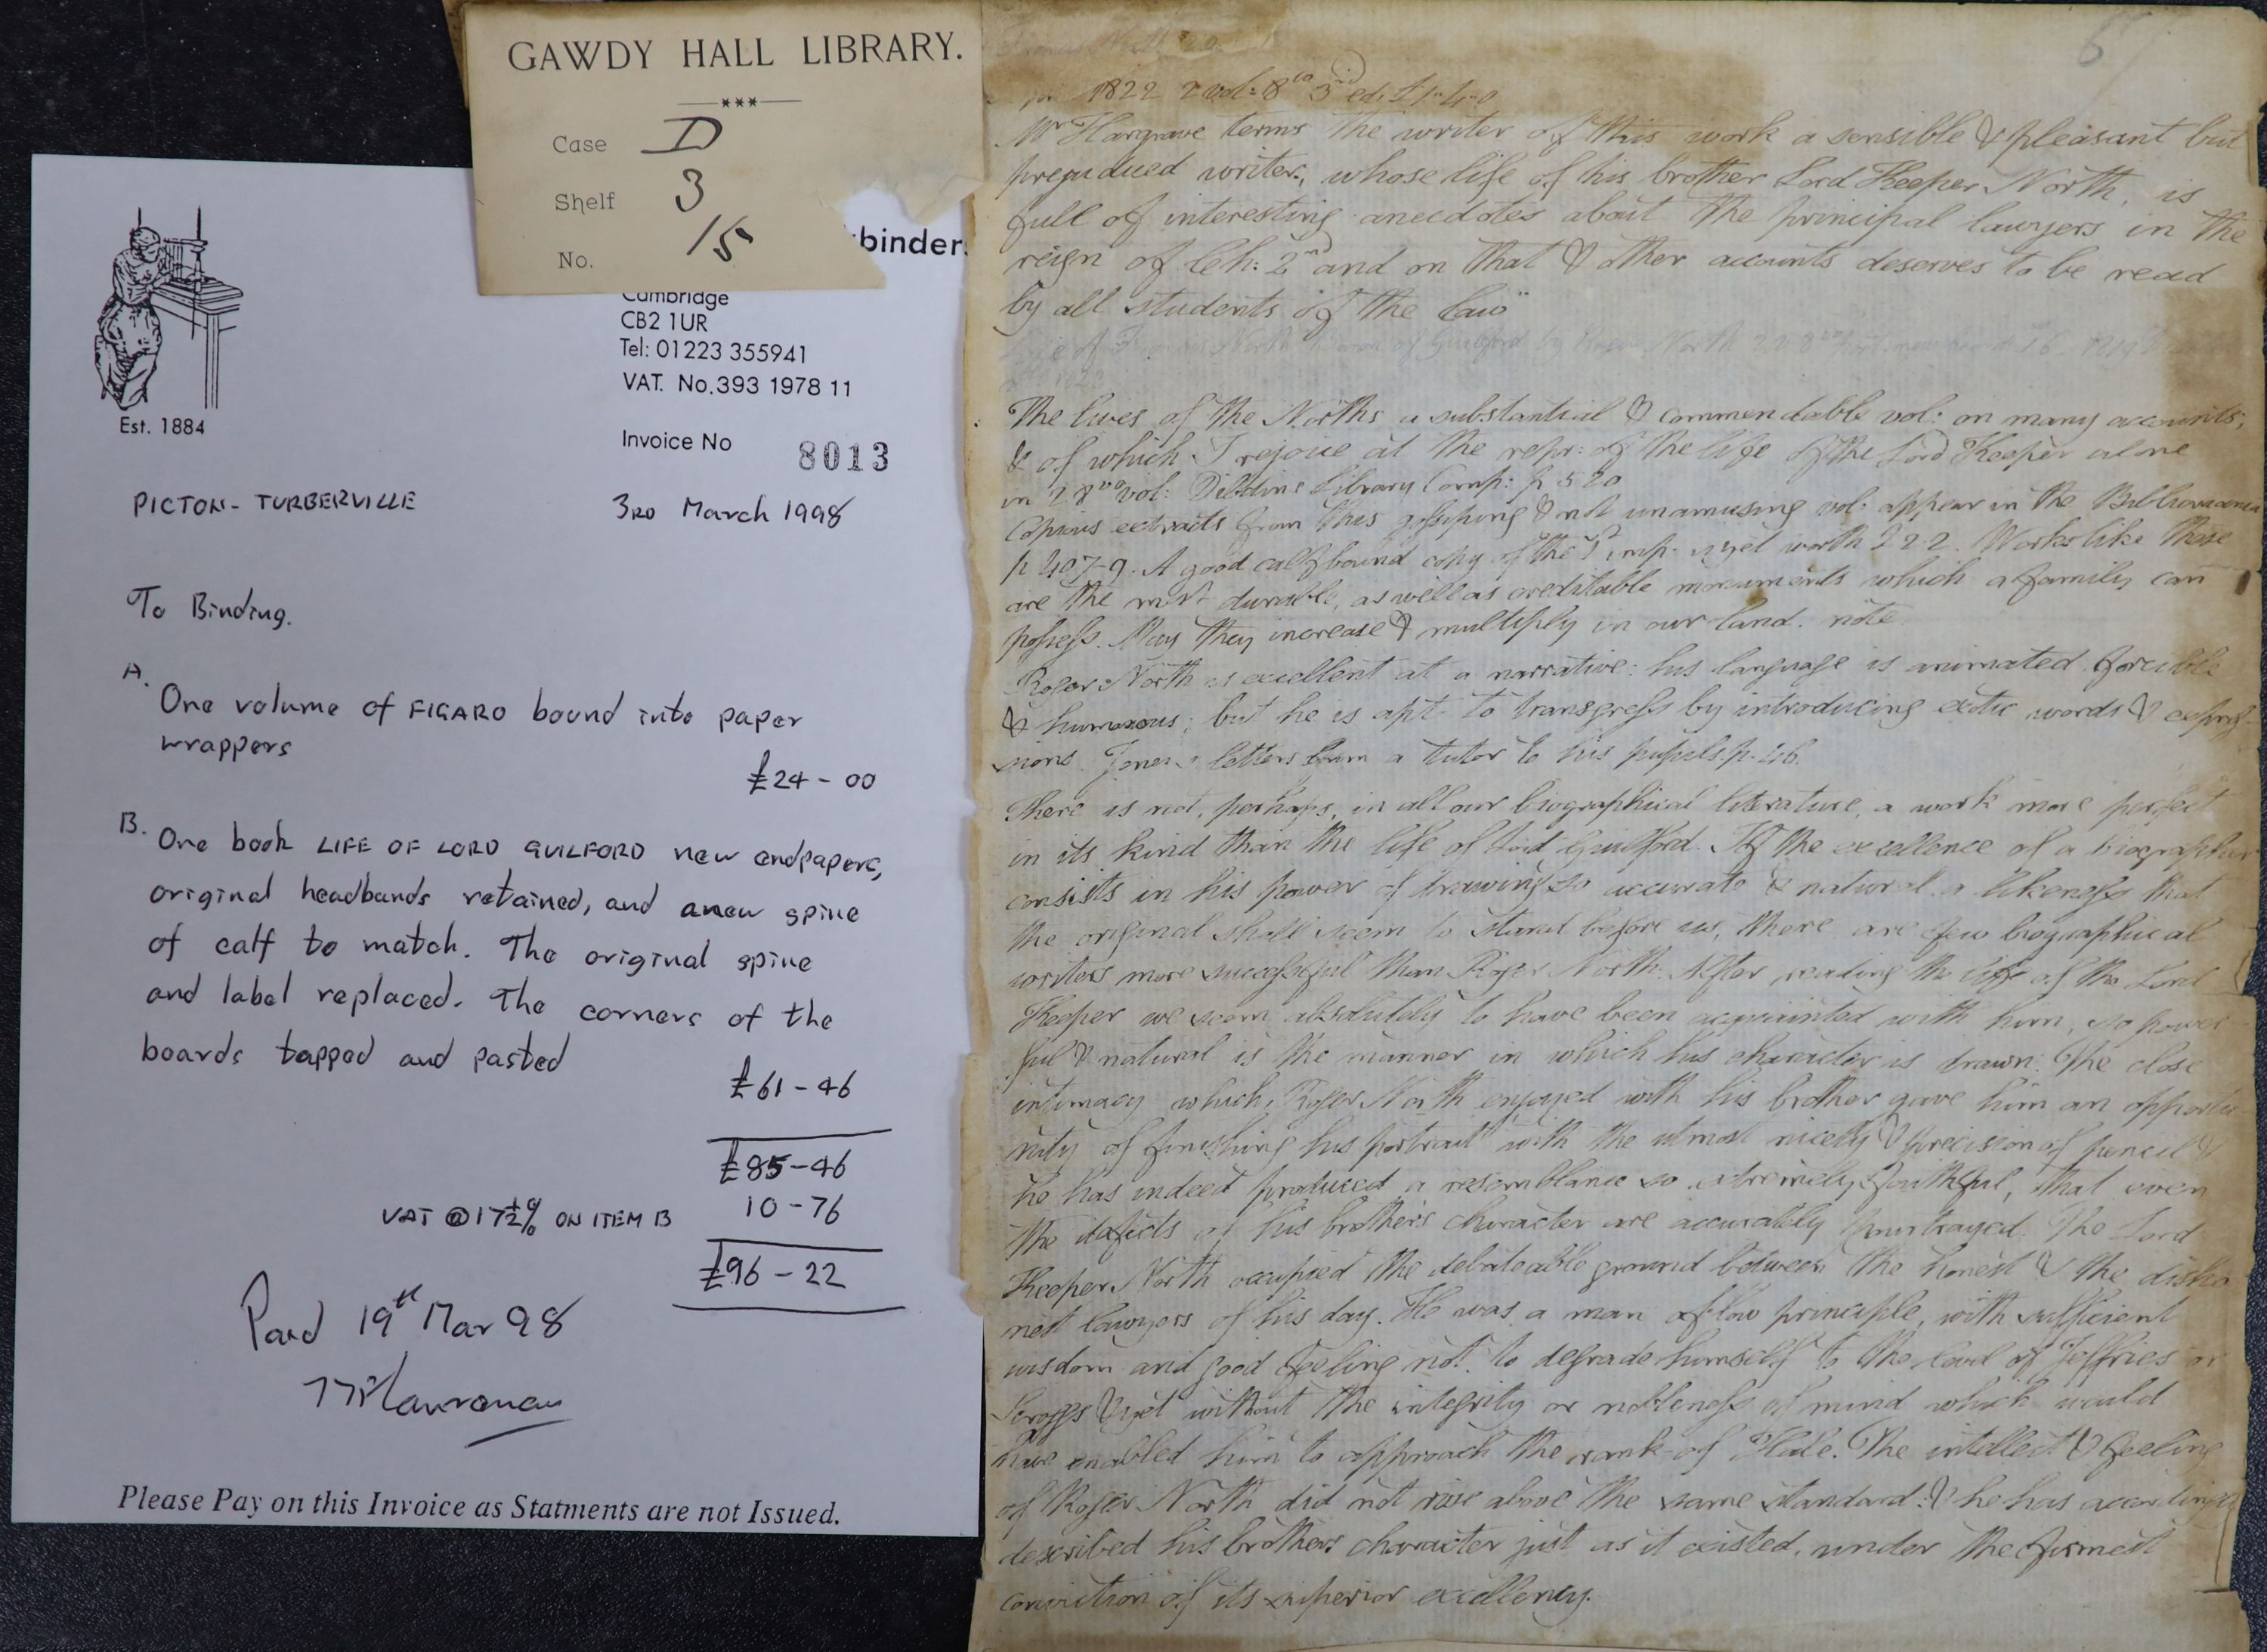 GAWDY HALL LIBRARY.
Case D
Shelf 3
No. 15
binders
Cambridge
CB2 1UR
Tel: 01223 355941
VAT. No.393 1978 11
Est. 1884
Invoice No 8013
PICTON-TURBERVILLE 3RD March 1998
To Binding.
A.
One volume of FIGARO bound into paper
wrappers
£24-00
B.
One book LIFE OF LORD GUILFORD new endpapers,
original headbands retained, and a new spine
of calf to match. The original spine
and label replaced. The corners of the
boards tapped and pasted
£61-46
£85-46
VAT @ 17½% ON ITEM B 10-76
£96-22
Paid 19th Mar 98
Please Pay on this Invoice as Statments are not Issued.
1822 2 vol: 8vo 3rd ed: £1-4-0
Mr Hargrave terms the writer of this work a sensible & pleasant but
prejudiced writer, whose life of his brother Lord Keeper North, is
full of interesting anecdotes about the principal lawyers in the
reign of Ch: 2nd and on that & other accounts deserves to be read
by all students of the law"
The lives of the Norths a substantial & commendable vol: on many accounts;
& of which I rejoice at the repr: of the life of the Lord Keeper alone
in 2 8vo vol: Dibdins Library Comp: p 520
Copious extracts from this gossiping & not unamusing vol: appear in the Bibliomania
p 407-9. A good calf bound copy of the 1st imp. is yet worth £2.2. Works like these
are the most durable, as well as creditable monuments which a family can
possess. May they increase & multiply in our land. note
Roger North is excellent at a narrative: his language is animated forcible
& humorous; but he is apt to transgress by introducing exotic words & expres-
sions. Jones's letters from a tutor to his pupils. p. 46.
There is not, perhaps, in all our biographical literature, a work more perfect
in its kind than the life of Lord Guilford. If the excellence of a biographer
consists in his power of drawing so accurate & natural a likeness that
the original shall seem to stand before us, there are few biographical
writers more successful than Roger North. After reading the life of the Lord
Keeper we seem absolutely to have been acquainted with him, so power-
ful & natural is the manner in which his character is drawn. The close
intimacy which Roger North enjoyed with his brother gave him an opportu-
nity of finishing his portrait with the utmost nicety & precision of pencil &
he has indeed produced a resemblance so extremely faithful, that even
the defects of his brother's character are accurately pourtrayed. The Lord
Keeper North occupied the debateable ground between the honest & the disho-
nest lawyers of his day. He was a man of low principle, with sufficient
wisdom and good feeling not to degrade himself to the level of Jeffries or
Scroggs & yet without the integrity or nobleness of mind which would
have enabled him to approach the rank of Hale. The intellect & feeling
of Roger North did not rise above the same standard: & he has accordingly
described his brothers character just as it existed, under the firmest
conviction of its superior excellency.